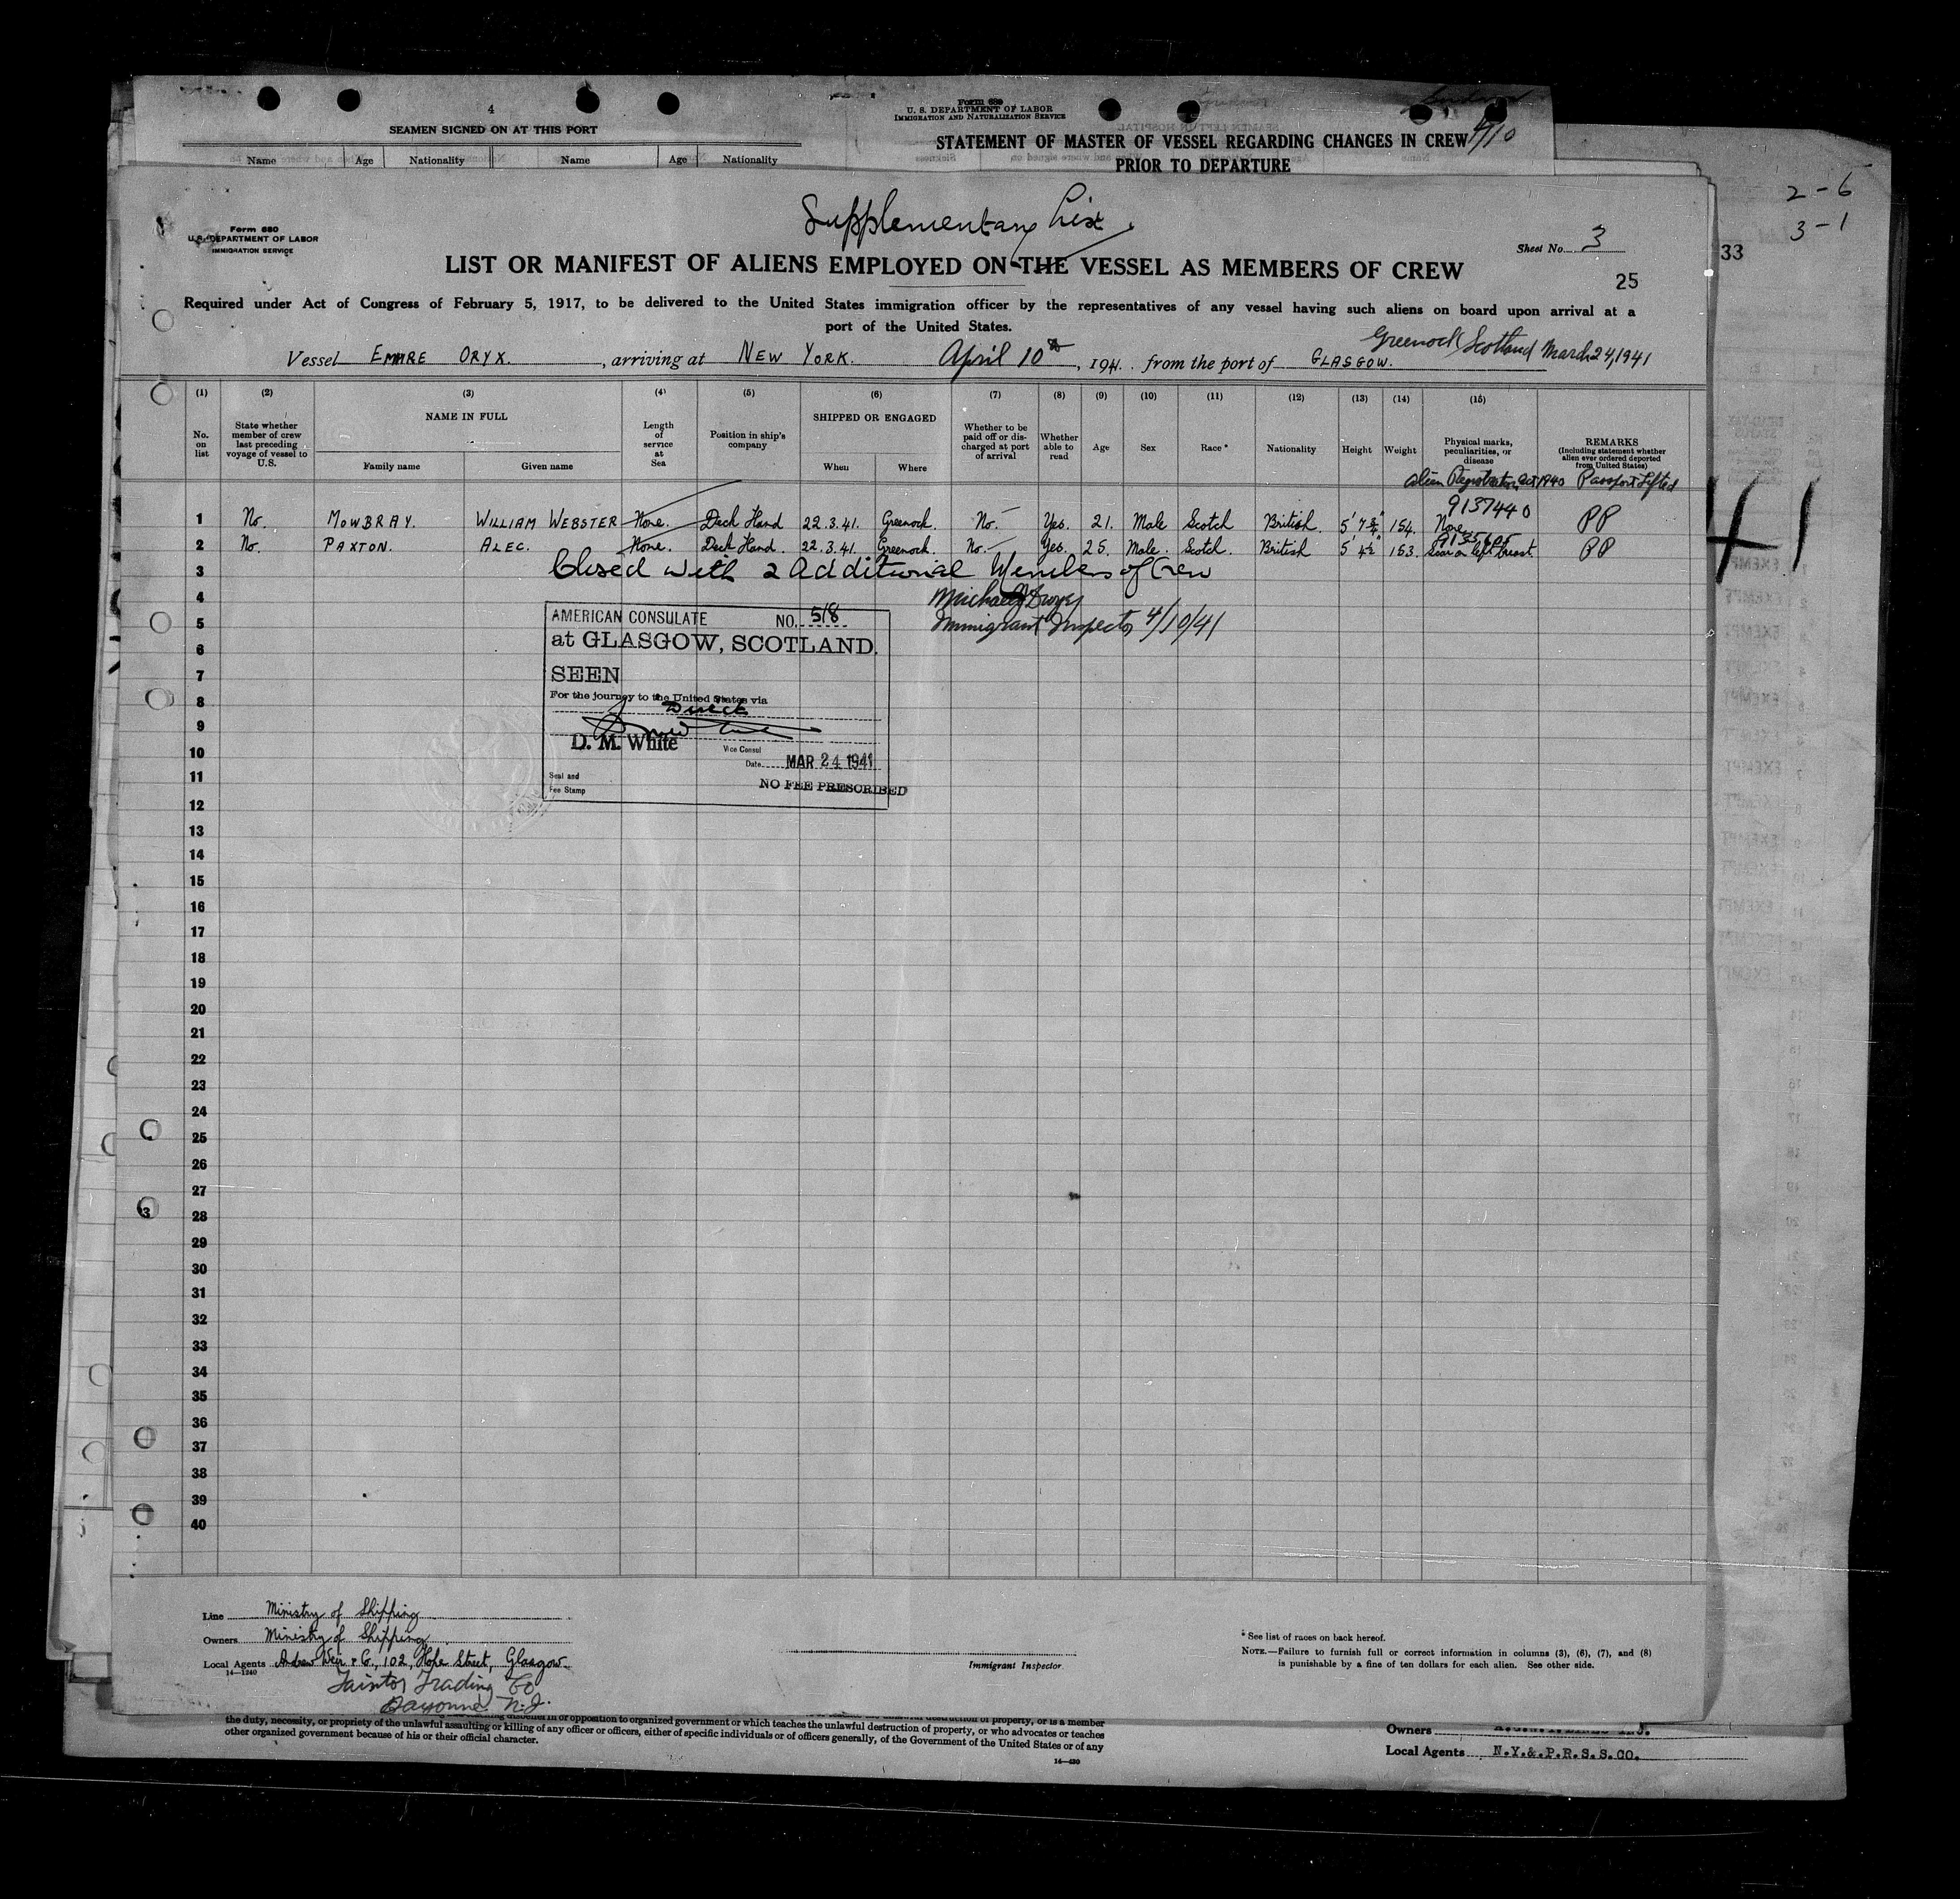 4
SEAMEN SIGNED ON AT THIS PORT
Name Age Nationality Name Age Nationality
Form 689
U. S. DEPARTMENT OF LABOR
IMMIGRATION AND NATURALIZATION SERVICE
STATEMENT OF MASTER OF VESSEL REGARDING CHANGES IN CREW
PRIOR TO DEPARTURE
4/10
2-6
3-1
33
41
Supplementary List
Form 680
U. S. DEPARTMENT OF LABOR
IMMIGRATION SERVICE
Sheet No. 3
25
LIST OR MANIFEST OF ALIENS EMPLOYED ON THE VESSEL AS MEMBERS OF CREW
Required under Act of Congress of February 5, 1917, to be delivered to the United States immigration officer by the representatives of any vessel having such aliens on board upon arrival at a
port of the United States.
Greenock Scotland March 24, 1941
Vessel EMPIRE ORYX. , arriving at NEW YORK. April 10th , 1941. from the port of GLASGOW.
(1) (2) (3) (4) (5) (6) (7) (8) (9) (10) (11) (12) (13) (14) (15)
No. on list
State whether member of crew last preceding voyage of vessel to U.S.
NAME IN FULL
Family name Given name
Length of service at Sea
Position in ship's company
SHIPPED OR ENGAGED
When Where
Whether to be paid off or discharged at port of arrival
Whether able to read
Age
Sex
Race *
Nationality
Height
Weight
Physical marks, peculiarities, or disease
REMARKS
(Including statement whether alien ever ordered deported from United States)
Alien Registration Act 1940 Passport Lifted
9137440
1 No. MOWBRAY. WILLIAM WEBSTER None. Deck Hand 22.3.41. Greenock. No. Yes. 21. Male Scotch British. 5' 7¾" 154. None PP
2 No. PAXTON. ALEC. None. Deck Hand. 22.3.41. Greenock. No. Yes. 25. Male. Scotch. British 5' 4½" 153. Scar on left breast PP
3 Closed with 2 Additional Members of Crew
4 Michael Dwyer
5 Immigrant Inspector 4/10/41
6
7
8
9
10
11
12
13
14
15
16
17
18
19
20
21
22
23
24
25
26
27
28
29
30
31
32
33
34
35
36
37
38
39
40
AMERICAN CONSULATE NO. 518
at GLASGOW, SCOTLAND.
SEEN
For the journey to the United States via
Direct
D. M. White
Vice Consul
Date MAR 24 1941
Seal and
Fee Stamp
NO FEE PRESCRIBED
Line Ministry of Shipping
Owners Ministry of Shipping
Local Agents Andrew Weir & Co., 102, Hope Street, Glasgow
14—1240
Taintor Trading Co
Bayonne N.J.
Immigrant Inspector.
* See list of races on back hereof.
NOTE.—Failure to furnish full or correct information in columns (3), (6), (7), and (8)
is punishable by a fine of ten dollars for each alien. See other side.
the duty, necessity, or propriety of the unlawful assaulting or killing of any officer or officers, either of specific individuals or of officers generally, of the Government of the United States or of any
other organized government because of his or their official character.
14—430
Owners
Local Agents N.Y.&.P.R.S.S.CO.